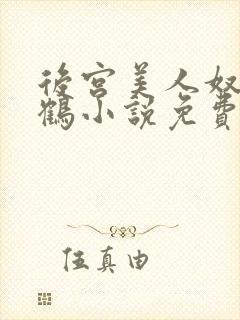 後宮美人奴
鶴小說免費
伍真由